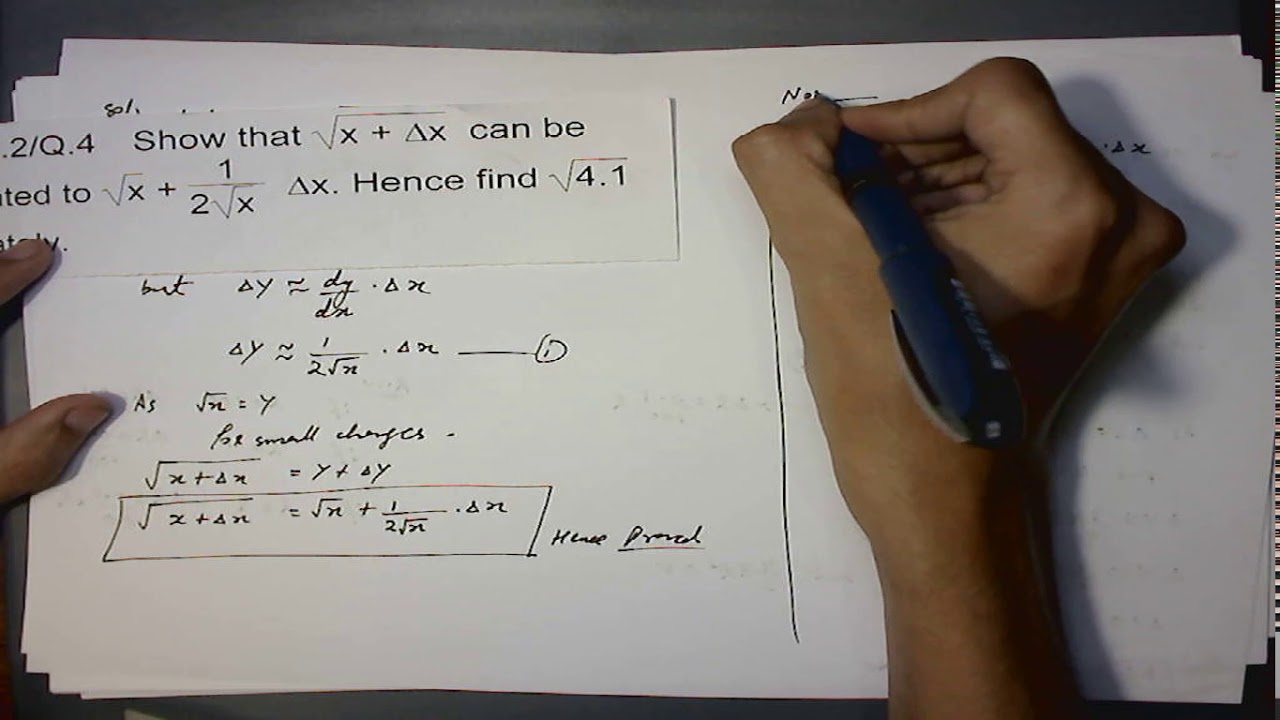 sol.
.2/Q.4 Show that √x + Δx can be
ated to √x + 1/2√x Δx. Hence find √4.1
ately.
but ΔY ≈ dy/dx . Δx
ΔY ≈ 1/2√x . Δx —— ①
As √x = Y
for small changes .
√x + Δx = Y + ΔY
√x + Δx = √x + 1/2√x . Δx
Hence Proved
. Δx